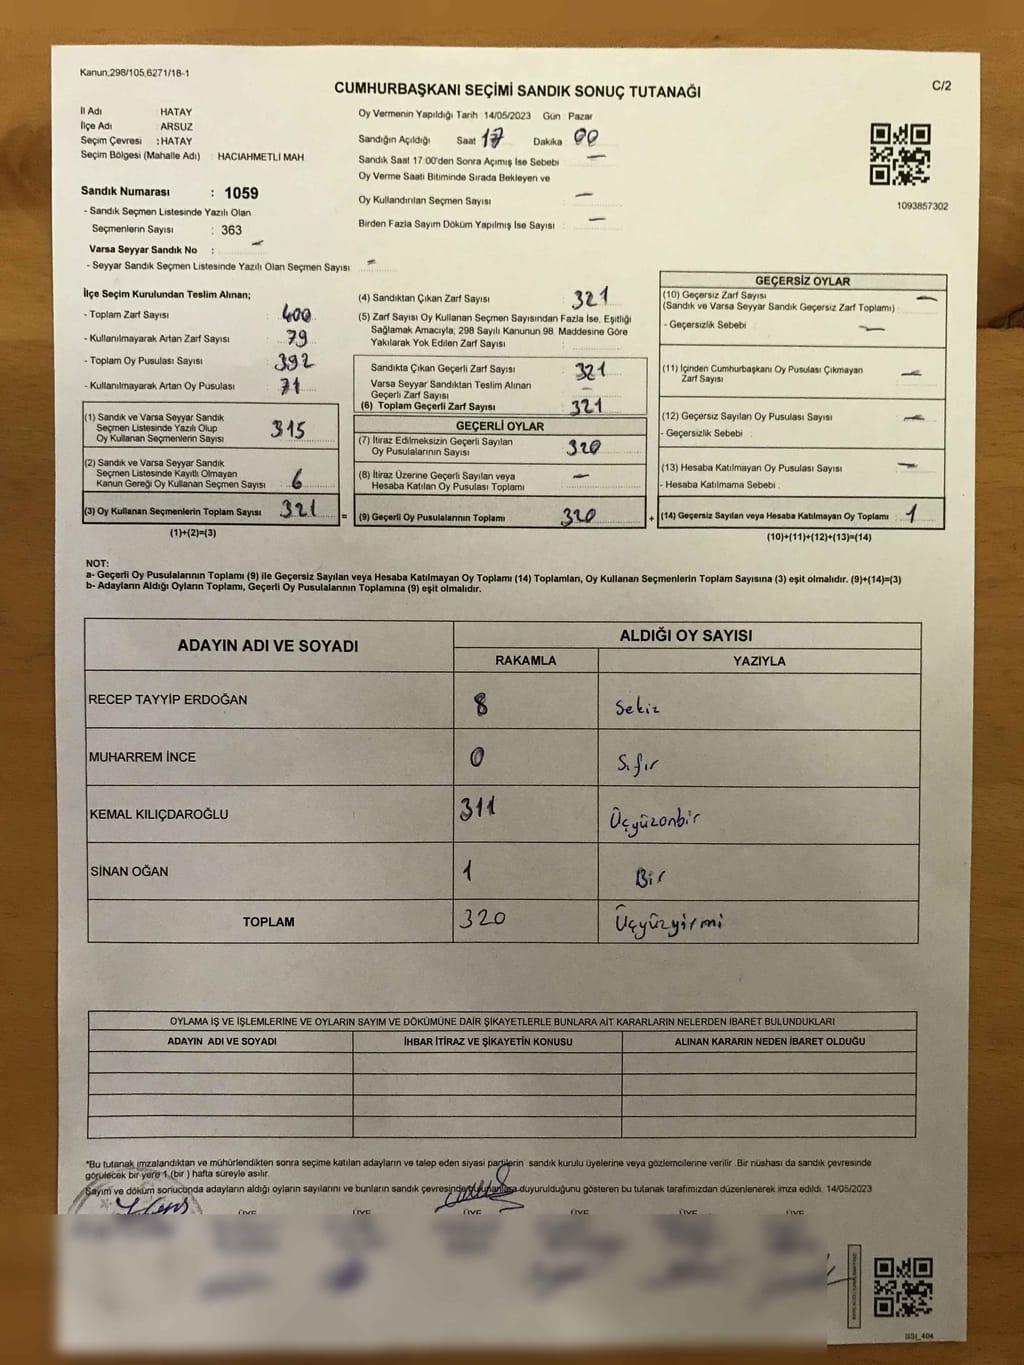 Kanun;298/105,6271/16-1
C/2
CUMHURBAŞKANI SEÇİMİ SANDIK SONUÇ TUTANAĞI
İl Adı : HATAY
İlçe Adı : ARSUZ
Seçim Çevresi : HATAY
Seçim Bölgesi (Mahalle Adı) : HACIAHMETLİ MAH
Sandık Numarası : 1059
- Sandık Seçmen Listesinde Yazılı Olan
Seçmenlerin Sayısı : 363
Varsa Seyyar Sandık No : -
- Seyyar Sandık Seçmen Listesinde Yazılı Olan Seçmen Sayısı : -
Oy Vermenin Yapıldığı Tarih 14/05/2023 Gün Pazar
Sandığın Açıldığı Saat 17 Dakika 00
Sandık Saat 17:00'den Sonra Açımış İse Sebebi -
Oy Verme Saati Bitiminde Sırada Bekleyen ve
Oy Kullandırılan Seçmen Sayısı -
Birden Fazla Sayım Döküm Yapılmış İse Sayısı -
1093857302
İlçe Seçim Kurulundan Teslim Alınan;
- Toplam Zarf Sayısı : 400
- Kullanılmayarak Artan Zarf Sayısı : 79
- Toplam Oy Pusulası Sayısı : 392
- Kullanılmayarak Artan Oy Pusulası : 71
(1) Sandık ve Varsa Seyyar Sandık
Seçmen Listesinde Yazılı Olup
Oy Kullanan Seçmenlerin Sayısı : 315
(2) Sandık ve Varsa Seyyar Sandık
Seçmen Listesinde Kayıtlı Olmayan
Kanun Gereği Oy Kullanan Seçmen Sayısı : 6
(3) Oy Kullanan Seçmenlerin Toplam Sayısı : 321
(1)+(2)=(3)
(4) Sandıktan Çıkan Zarf Sayısı : 321
(5) Zarf Sayısı Oy Kullanan Seçmen Sayısından Fazla İse, Eşitliği
Sağlamak Amacıyla; 298 Sayılı Kanunun 98. Maddesine Göre
Yakılarak Yok Edilen Zarf Sayısı :
Sandıkta Çıkan Geçerli Zarf Sayısı : 321
Varsa Seyyar Sandıktan Teslim Alınan
Geçerli Zarf Sayısı : -
(6) Toplam Geçerli Zarf Sayısı : 321
GEÇERLİ OYLAR
(7) İtiraz Edilmeksizin Geçerli Sayılan
Oy Pusulalarının Sayısı : 320
(8) İtiraz Üzerine Geçerli Sayılan veya
Hesaba Katılan Oy Pusulası Toplamı : -
= (9) Geçerli Oy Pusulalarının Toplamı : 320
GEÇERSİZ OYLAR
(10) Geçersiz Zarf Sayısı
(Sandık ve Varsa Seyyar Sandık Geçersiz Zarf Toplamı) : -
- Geçersizlik Sebebi : -
(11) İçinden Cumhurbaşkanı Oy Pusulası Çıkmayan
Zarf Sayısı : -
(12) Geçersiz Sayılan Oy Pusulası Sayısı : -
- Geçersizlik Sebebi :
(13) Hesaba Katılmayan Oy Pusulası Sayısı : -
- Hesaba Katılmama Sebebi :
+ (14) Geçersiz Sayılan veya Hesaba Katılmayan Oy Toplamı : 1
(10)+(11)+(12)+(13)=(14)
NOT:
a- Geçerli Oy Pusulalarının Toplamı (9) ile Geçersiz Sayılan veya Hesaba Katılmayan Oy Toplamı (14) Toplamları, Oy Kullanan Seçmenlerin Toplam Sayısına (3) eşit olmalıdır. (9)+(14)=(3)
b- Adayların Aldığı Oyların Toplamı, Geçerli Oy Pusulalarının Toplamına (9) eşit olmalıdır.
ADAYIN ADI VE SOYADI
ALDIĞI OY SAYISI
RAKAMLA YAZIYLA
RECEP TAYYİP ERDOĞAN 8 Sekiz
MUHARREM İNCE 0 Sıfır
KEMAL KILIÇDAROĞLU 311 Üçyüzonbir
SİNAN OĞAN 1 Bir
TOPLAM 320 Üçyüzyirmi
OYLAMA İŞ VE İŞLEMLERİNE VE OYLARIN SAYIM VE DÖKÜMÜNE DAİR ŞİKAYETLERLE BUNLARA AİT KARARLARIN NELERDEN İBARET BULUNDUKLARI
ADAYIN ADI VE SOYADI İHBAR İTİRAZ VE ŞİKAYETİN KONUSU ALINAN KARARIN NEDEN İBARET OLDUĞU
*Bu tutanak imzalandıktan ve mühürlendikten sonra seçime katılan adayların ve talep eden siyasi partilerin sandık kurulu üyelerine veya gözlemcilerine verilir .Bir nüshası da sandık çevresinde
görülecek bir yere 1 (bir ) hafta süreyle asılır.
Sayım ve döküm sonucunda adayların aldığı oyların sayılarını ve bunların sandık çevresinde duyurulduğunu gösteren bu tutanak tarafımızdan düzenlenerek imza edildi. 14/05/2023
ÜYE ÜYE ÜYE ÜYE ÜYE ÜYE